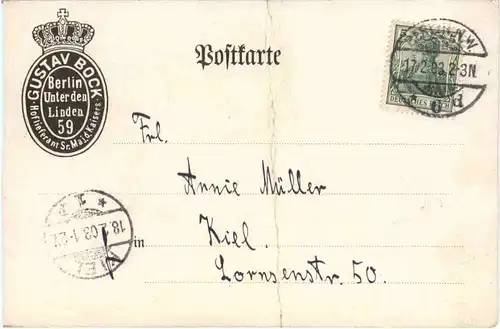 GUSTAV BOCK
Berlin
Unter den
Linden
59
Hoflieferant Sr. Maj. d. Kaisers.
Postkarte
17.2.03.2-3N.
DEUTSCHES REICH
Frl.
Annie Müller
in Kiel.
Lornsenstr. 50.
KIEL
18.2.03.1-2